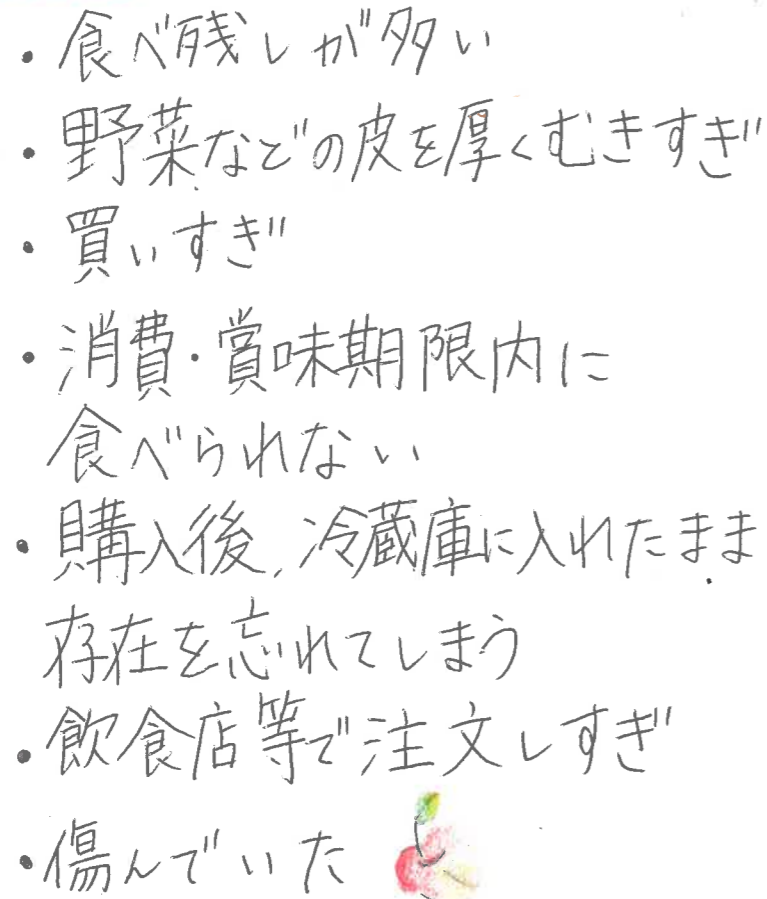 ・食べ残しが多い
・野菜などの皮を厚くむきすぎ
・買いすぎ
・消費・賞味期限内に
食べられない
・購入後、冷蔵庫に入れたまま
存在を忘れてしまう
・飲食店等で注文しすぎ
・傷んでいた